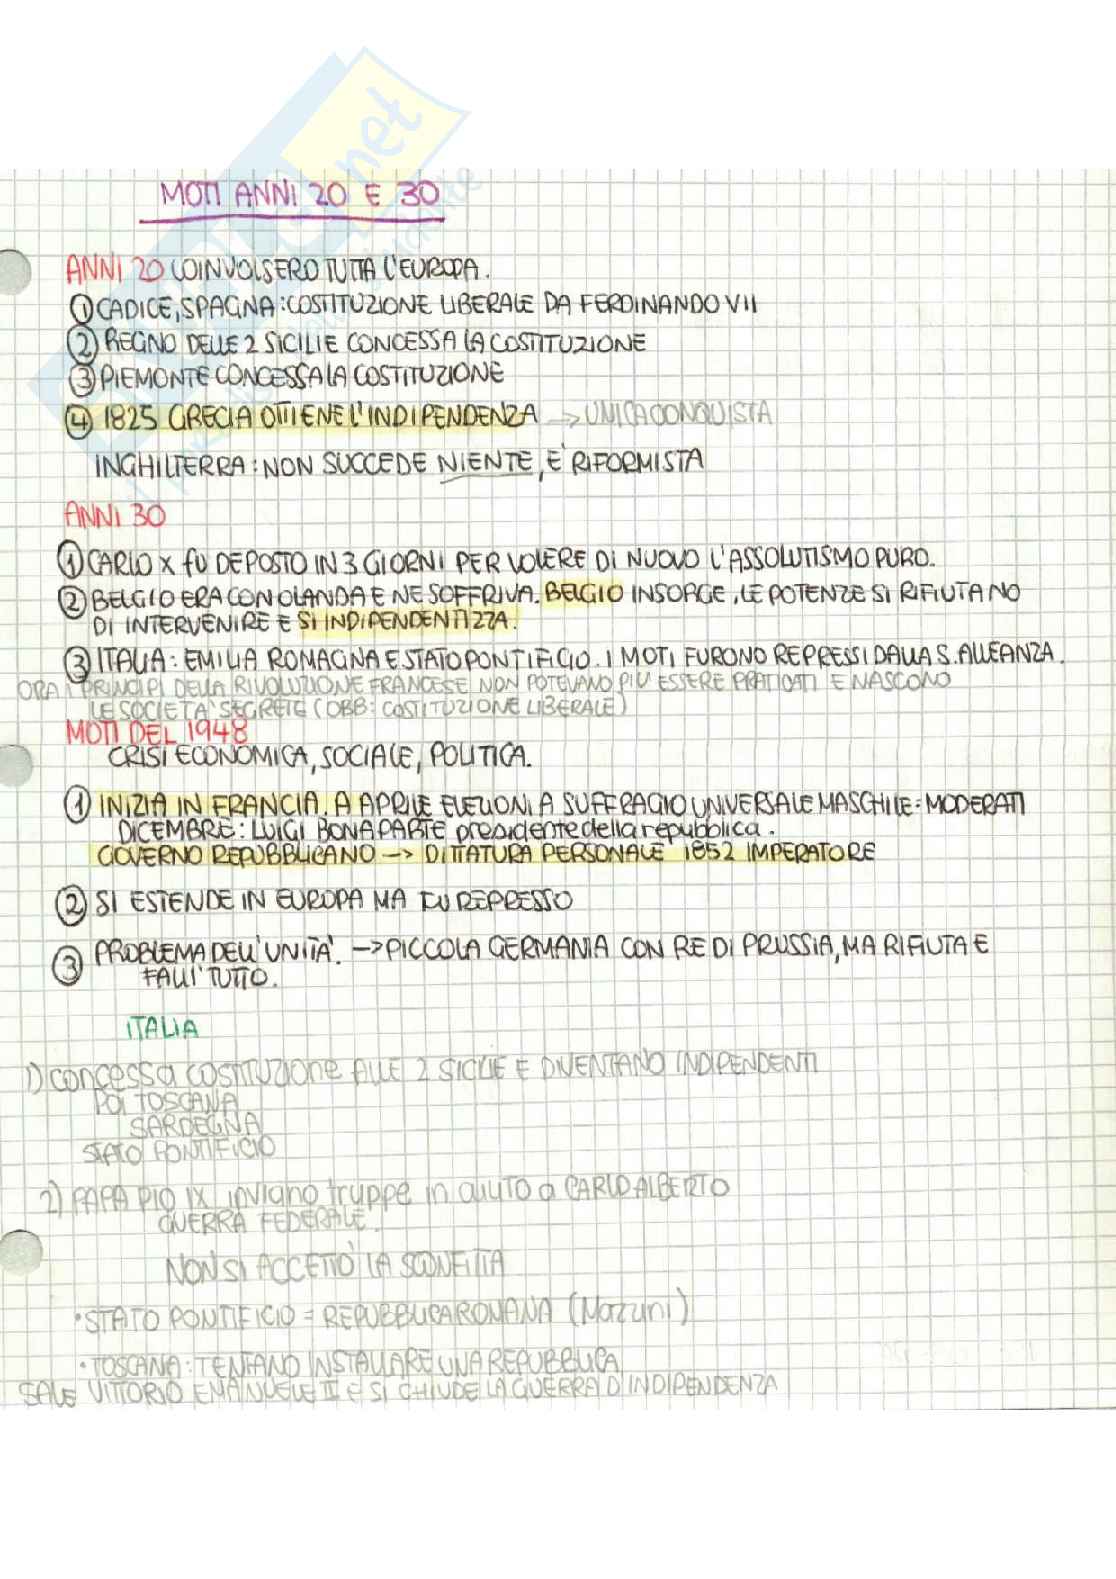 MOTI ANNI 20 E 30
ANNI 20 COINVOLSERO TUTTA L'EUROPA.
① CADICE, SPAGNA: COSTITUZIONE LIBERALE DA FERDINANDO VII
② REGNO DELLE 2 SICILIE CONCESSA LA COSTITUZIONE
③ PIEMONTE CONCESSA LA COSTITUZIONE
④ 1825 GRECIA OTTIENE L'INDIPENDENZA → UNICA CONQUISTA
INGHILTERRA: NON SUCCEDE NIENTE, E' RIFORMISTA
ANNI 30
① CARLO X FU DEPOSTO IN 3 GIORNI PER VOLERE DI NUOVO L'ASSOLUTISMO PURO.
② BELGIO ERA CON OLANDA E NE SOFFRIVA. BELGIO INSORGE, LE POTENZE SI RIFIUTANO
DI INTERVENIRE E SI INDIPENDENTIZZA.
③ ITALIA: EMILIA ROMAGNA E STATO PONTIFICIO. I MOTI FURONO REPRESSI DALLA S. ALLEANZA.
ORA I PRINCIPI DELLA RIVOLUZIONE FRANCESE NON POTEVANO PIU ESSERE PRATICATI E NASCONO
LE SOCIETA' SEGRETE (OBB: COSTITUZIONE LIBERALE)
MOTI DEL 1948
CRISI ECONOMICA, SOCIALE, POLITICA.
① INIZIA IN FRANCIA. A APRILE ELEZIONI A SUFFRAGIO UNIVERSALE MASCHILE: MODERATI
DICEMBRE: LUIGI BONAPARTE presidente della repubblica.
GOVERNO REPUBBLICANO → DITTATURA PERSONALE 1852 IMPERATORE
② SI ESTENDE IN EUROPA MA FU REPRESSO
③ PROBLEMA DELL'UNITA'. → PICCOLA GERMANIA CON RE DI PRUSSIA, MA RIFIUTA E
FALLI' TUTTO.
ITALIA
1) concessa COSTITUZIONE ALLE 2 SICILIE E DIVENTANO INDIPENDENTI
POI TOSCANA
SARDEGNA
STATO PONTIFICIO
2) PAPA PIO IX inviano truppe in aiuto a CARLO ALBERTO
GUERRA FEDERALE.
NON SI ACCETTO' LA SCONFITTA
• STATO PONTIFICIO = REPUBBLICA ROMANA (Mazzini)
• TOSCANA: TENTANO INSTALLARE UNA REPUBBLICA
SALE VITTORIO EMANUELE II E SI CHIUDE LA GUERRA D'INDIPENDENZA